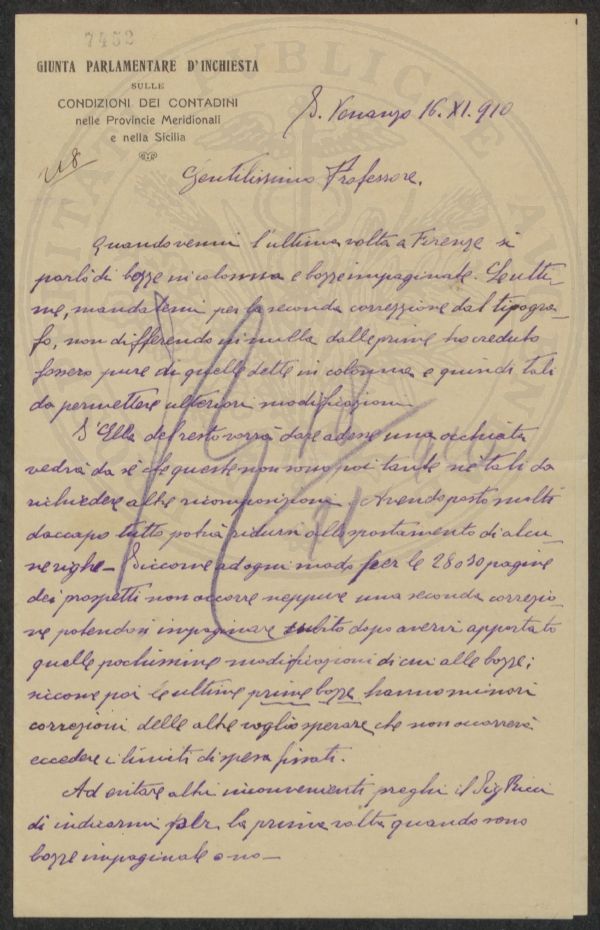 7452
GIUNTA PARLAMENTARE D'INCHIESTA
SULLE
CONDIZIONI DEI CONTADINI
nelle Provincie Meridionali
e nella Sicilia
S. Venanzo 16. XI. 910
Gentilissimo Professore.
Quando venni l'ultima volta a Firenze si
parlò di bozze in colonna e bozze impaginate. Le ulti-
me, mandatemi per la seconda correzzione dal tipogra-
fo, non differendo in nulla dalle prime ho creduto
fossero pure di quelle dette in colonna e quindi tali
da permettere ulteriori modificazioni.
S'Ella del resto vorrà dare ad esse una occhiata
vedrà da sè che queste non sono poi tante nè tali da
richiedere altre ricomposizioni. Avendo posto molti
daccapo tutto potrà ridursi allo spostamento di alcu-
ne righe — Siccome ad ogni modo per le 28 o 30 pagine
dei prospetti non occorre neppure una seconda correzio-
ne potendosi impaginare subito dopo avervi apportato
quelle pochissime modificazioni di cui alle bozze;
siccome poi le ultime prime bozze hanno minori
correzioni delle altre voglio sperare che non occorrerà
eccedere i limiti di spesa fissati.
Ad evitare altri inconvenienti preghi il Sig Ricci
di indicarmi per la prima volta quando sono
bozze impaginate o no —